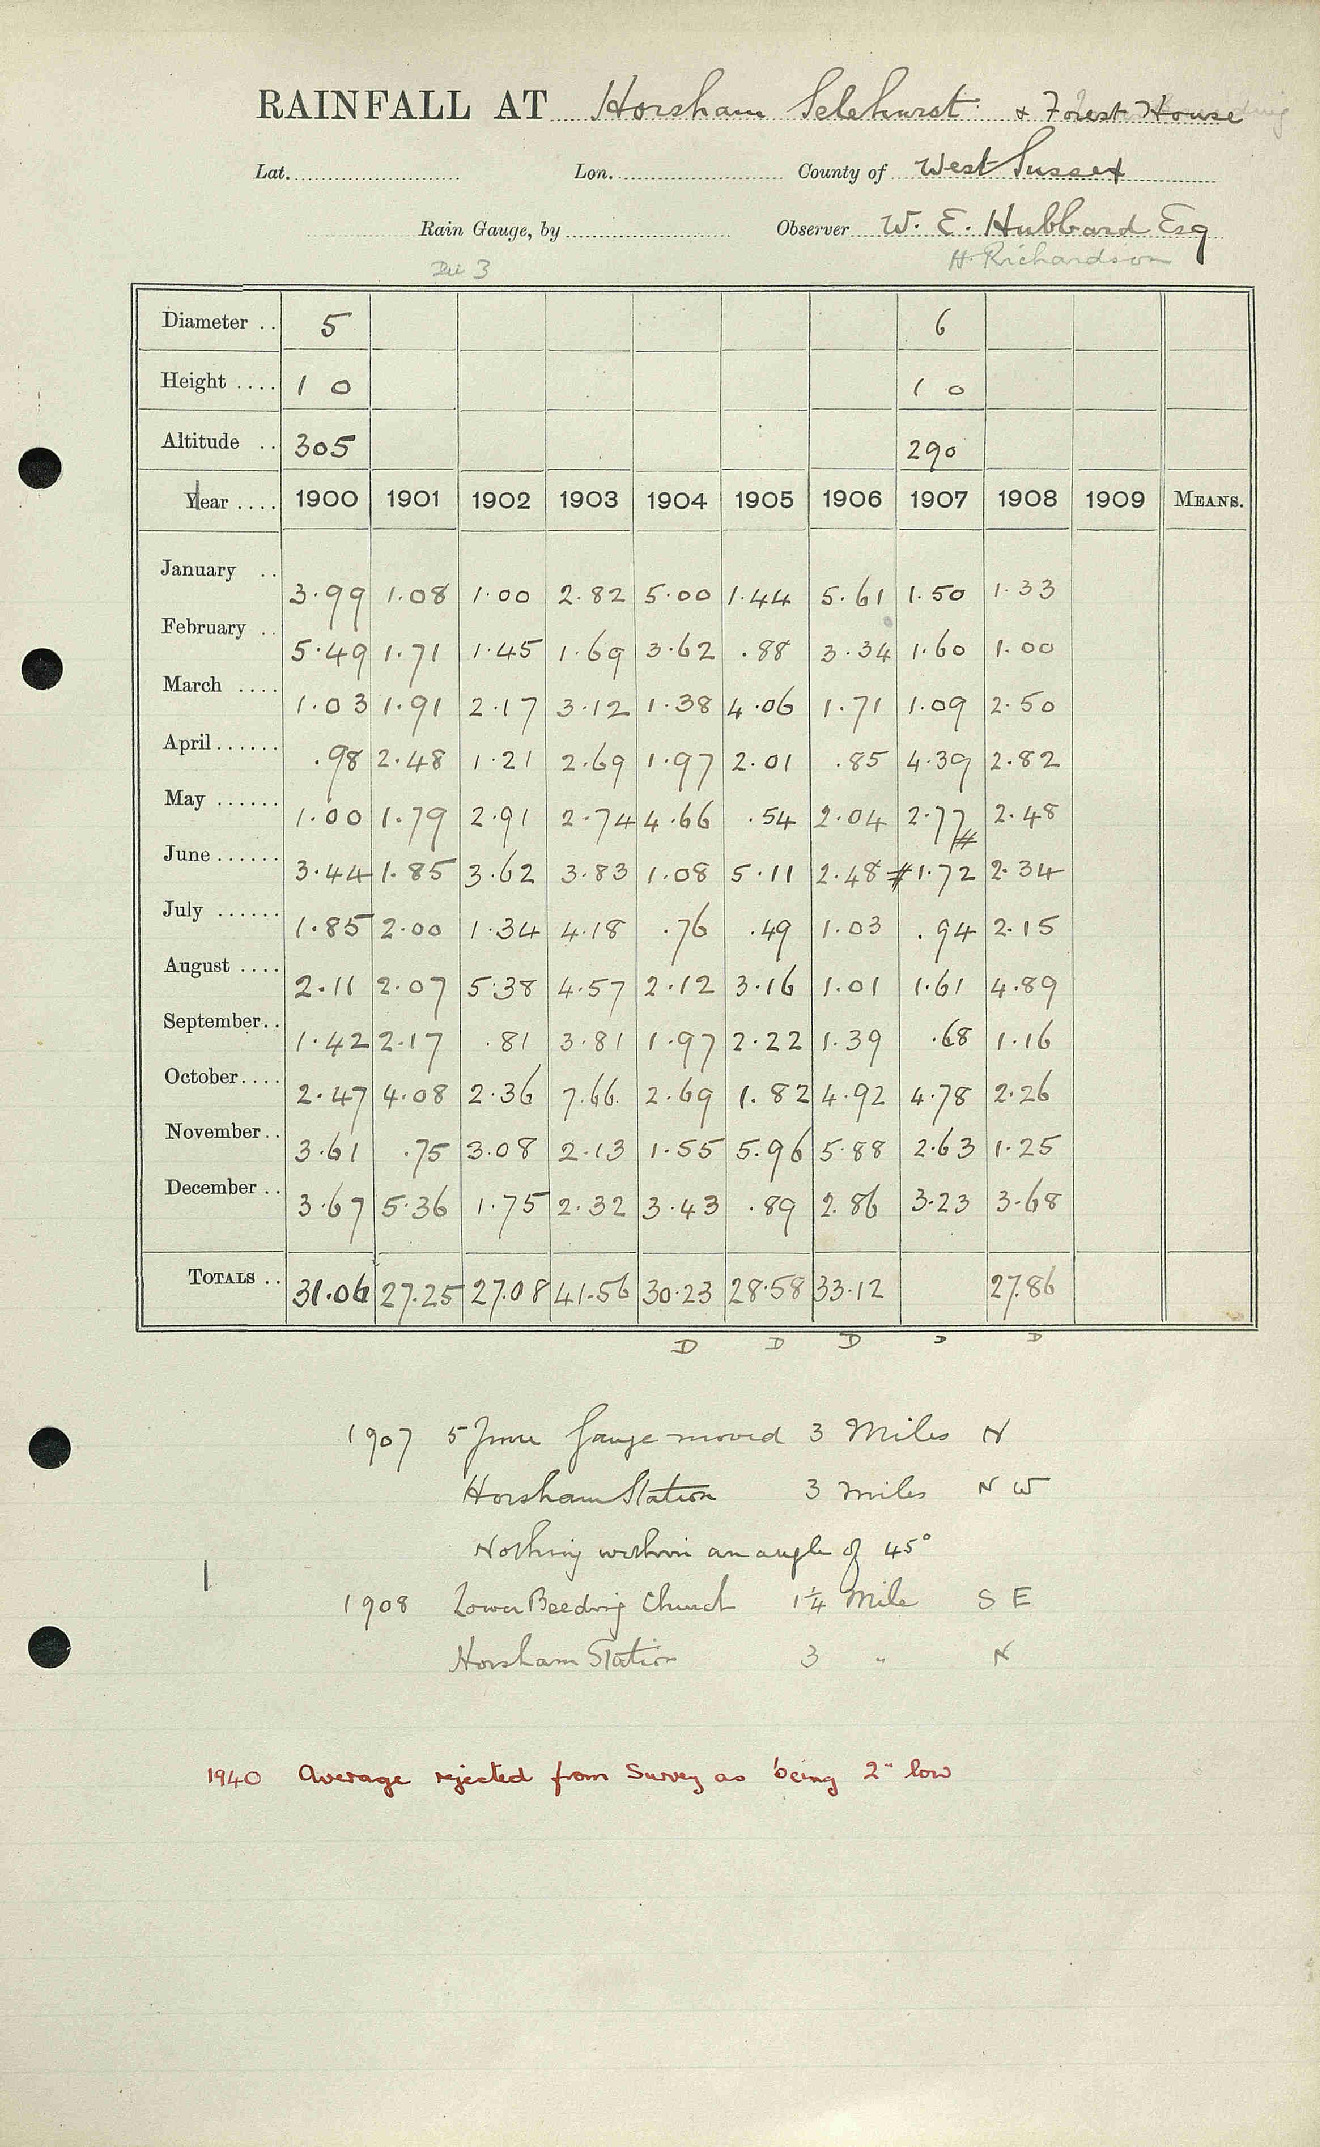 RAINFALL AT Horsham Selehurst & Forest House
Lat. Lon. County of West Sussex
Rain Gauge, by Observer W. E. Hubbard Esq
Div 3 H. Richardson
Diameter .. 5 6
Height .... 1 0 1 0
Altitude .. 305 290
Year .... 1900 1901 1902 1903 1904 1905 1906 1907 1908 1909 MEANS.
January .. 3.99 1.08 1.00 2.82 5.00 1.44 5.61 1.50 1.33
February .. 5.49 1.71 1.45 1.69 3.62 .88 3.34 1.60 1.00
March .... 1.03 1.91 2.17 3.12 1.38 4.06 1.71 1.09 2.50
April ...... .98 2.48 1.21 2.69 1.97 2.01 .85 4.39 2.82
May ...... 1.00 1.79 2.91 2.74 4.66 .54 2.04 2.77 2.48
June ...... 3.44 1.85 3.62 3.83 1.08 5.11 2.48 #1.72 2.34
July ...... 1.85 2.00 1.34 4.18 .76 .49 1.03 .94 2.15
August .... 2.11 2.07 5.38 4.57 2.12 3.16 1.01 1.61 4.89
September .. 1.42 2.17 .81 3.81 1.97 2.22 1.39 .68 1.16
October .... 2.47 4.08 2.36 7.66 2.69 1.82 4.92 4.78 2.26
November .. 3.61 .75 3.08 2.13 1.55 5.96 5.88 2.63 1.25
December .. 3.67 5.36 1.75 2.32 3.43 .89 2.86 3.23 3.68
TOTALS .. 31.06 27.25 27.08 41.56 30.23 28.58 33.12 27.86
D D D D D
1907 5 June Gauge moved 3 Miles N
Horsham Station 3 miles N W
Nothing within an angle of 45°
1908 Lower Beeding Church 1¼ Mile S E
Horsham Station 3 " N
1940 Average rejected from Survey as being 2" low